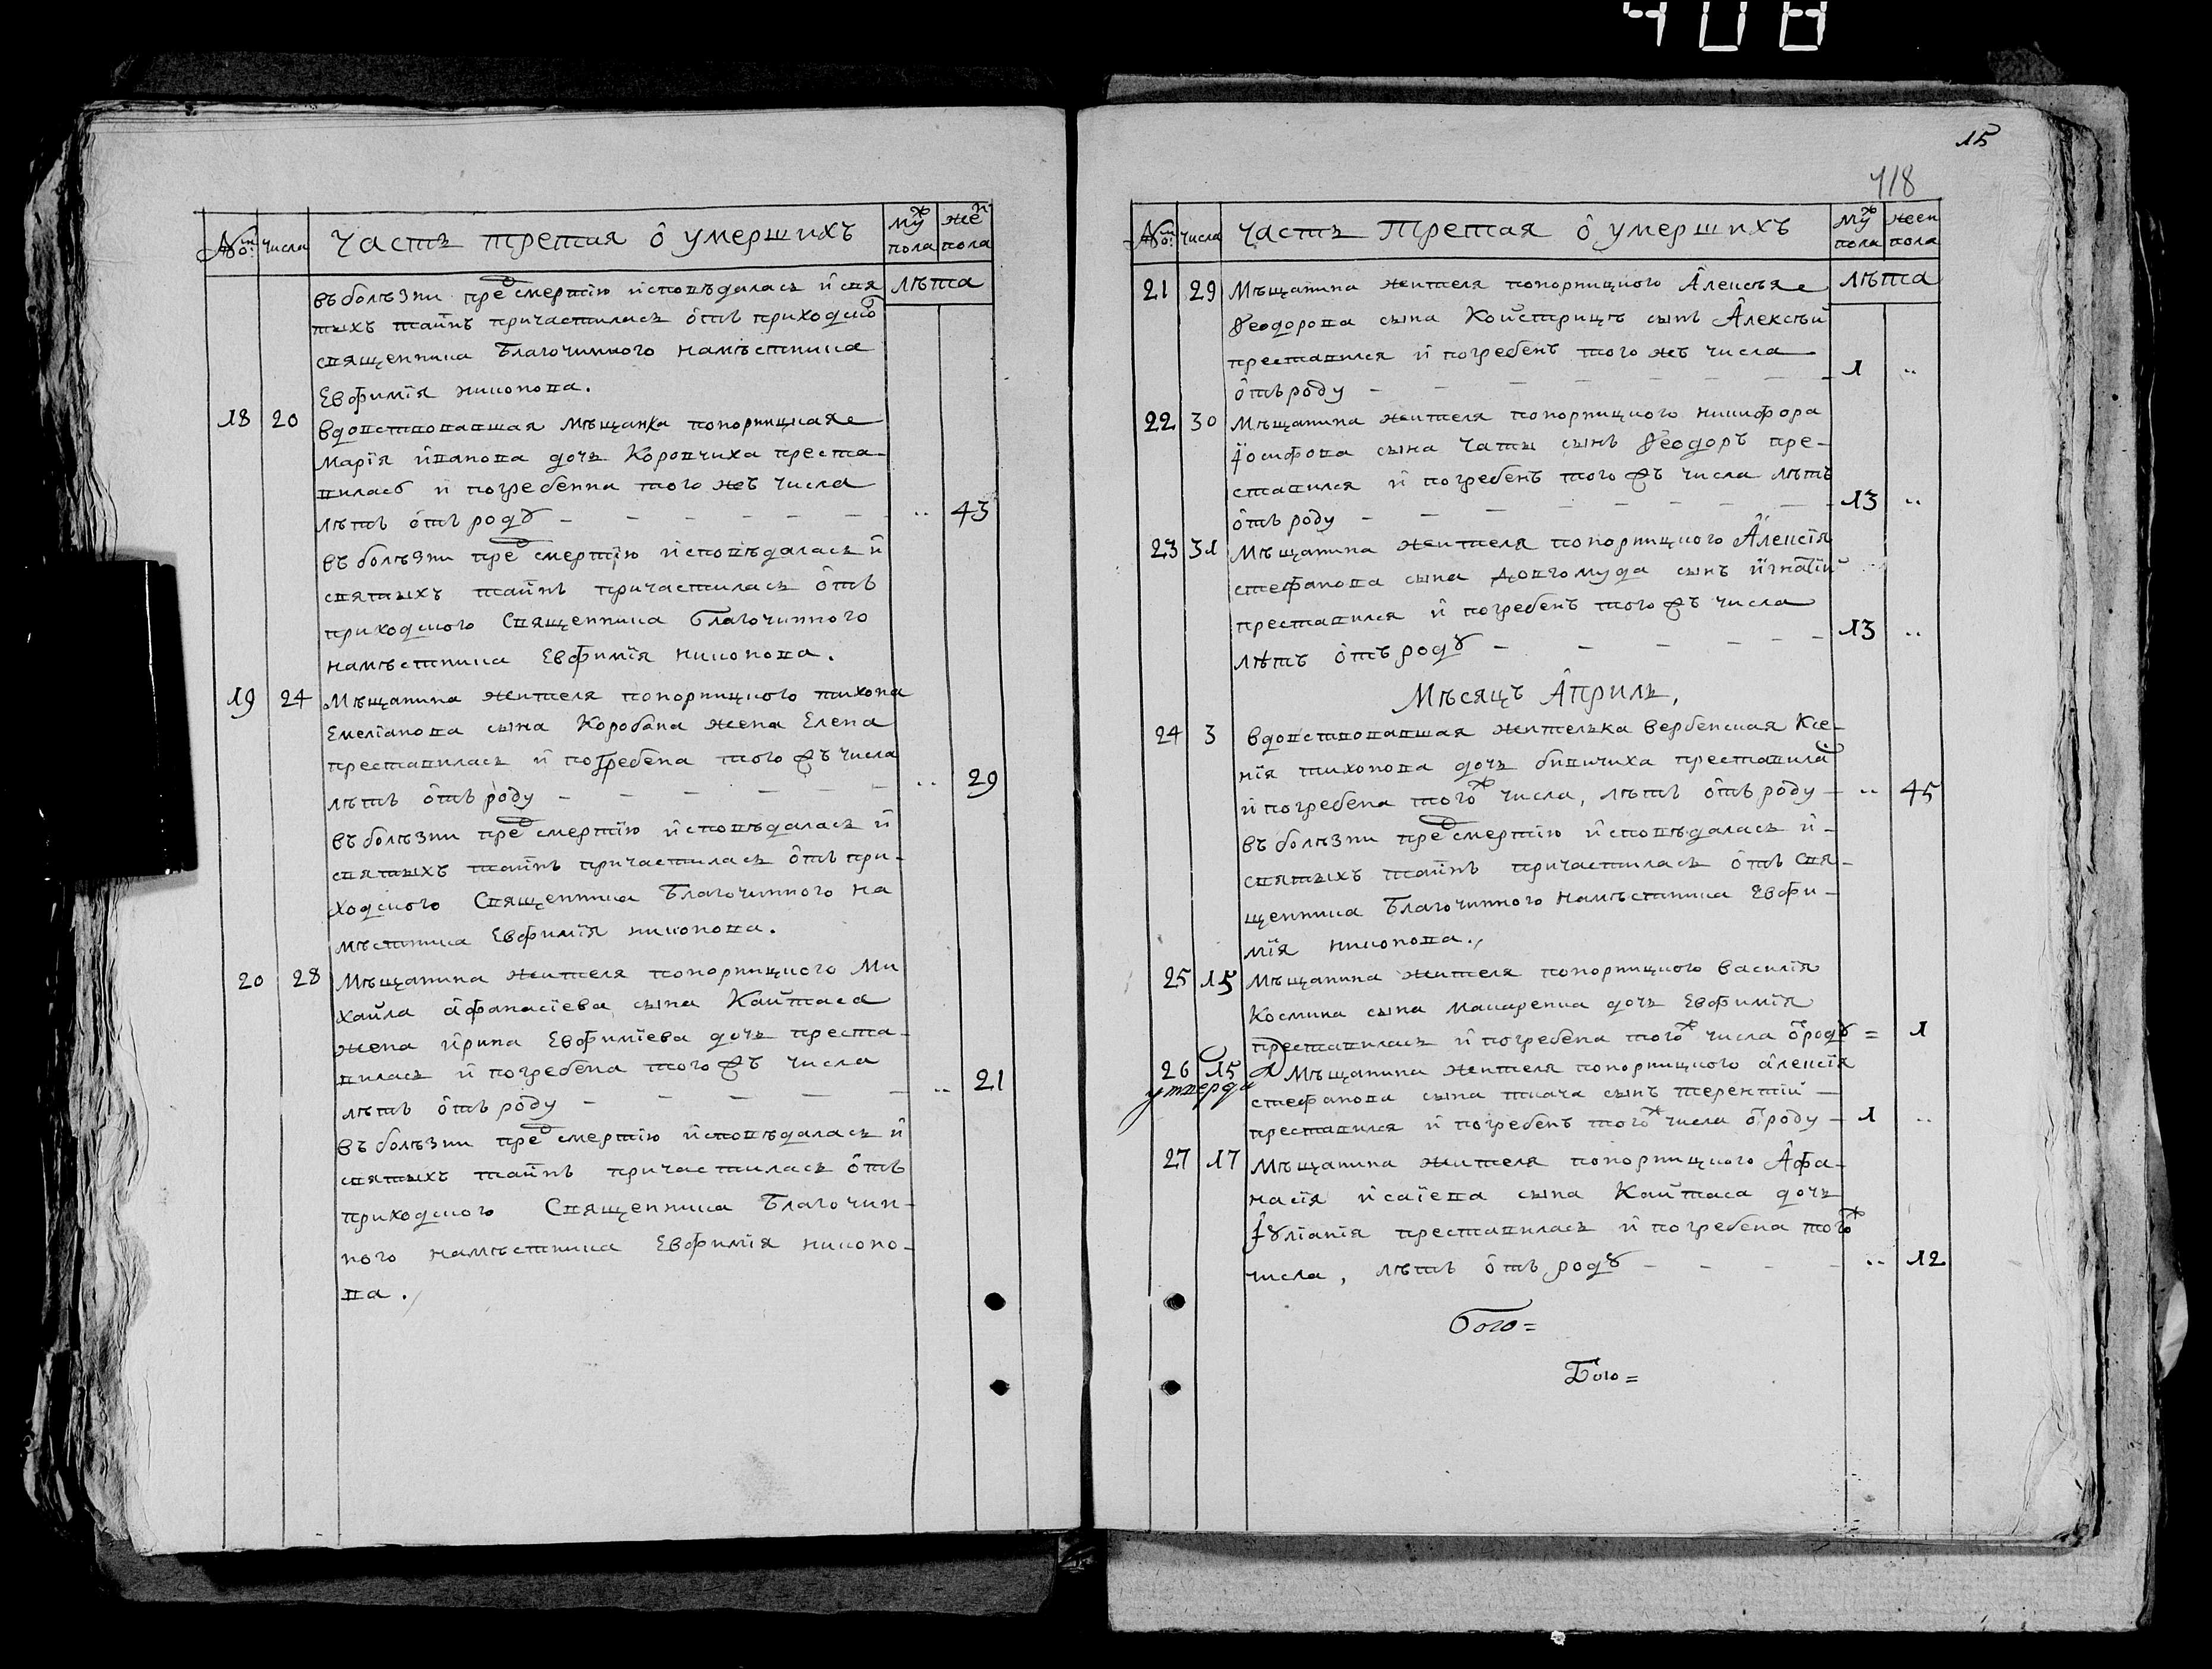 408
№ числа Часть третая о умершихъ муж пола жен пола
лѣта
въ болѣзни пред смертїю исповѣдалась и свя
тыхъ таинъ причастилась отъ приходско
священника Благочинного намѣстника
Евфимїя никонова.
18 20 вдовствовавшая мѣщанка понорницкая
марїя иванова дочь Коропчиха преста-
вилась и погребенна того жъ числа
лѣтъ отъ роду - - - - - - ·· 43
въ болѣзни пред смертїю исповѣдалась и
святыхъ таинъ причастилась отъ
приходского Священника Благочинного
намѣстника Евфимїя никонова.
19 24 Мѣщанина жителя понорницкого тихона
Емелїанова сына Коробана жена Елена
преставилась и погребена того жъ числа
лѣтъ отъ роду - - - - - - ·· 29
въ болѣзни пред смертїю исповѣдалась и
святыхъ таинъ причастилась отъ при-
ходского Священника Благочинного на
мѣстника Евфимїя никонова.
20 28 Мѣщанина жителя понорницкого Ми
хаила афанасїева сына Кайтаса
жена ирина Евфимїева дочь преста-
вилась и погребена того жъ числа
лѣтъ отъ роду - - - - - ·· 21
въ болѣзни пред смертїю исповѣдалась и
святыхъ таинъ причастилась отъ
приходского Священника Благочин-
ного намѣстника Евфимїя никоно-
ва.
15
418
№ числа Часть третая о умершихъ муж пола жен пола
лѣта
21 29 Мѣщанина жителя понорницкого Алексѣя
Ѳеодорова сына Койстрицѣ сынъ Алексѣй
преставился и погребенъ того жъ числа
отъ роду - - - - - - - 1 ··
22 30 Мѣщанина жителя понорницкого никифора
Їосифова сына Чаты сынъ Ѳеодоръ пре-
ставился и погребенъ того жъ числа лѣтъ
отъ роду - - - - - - - 13 ··
23 31 Мѣщанина жителя понорницкого Алексїя
стефанова сына Довгомуда сынъ игнатїй
преставился и погребенъ того жъ числа
лѣтъ отъ роду - - - - - 13 ··
Мѣсяцъ Априль,
24 3 вдовствовавшая жителька вербенская Ксе-
нїя тихонова дочь бивичиха преставила
и погребена того ж числа, лѣтъ отъ роду - ·· 45
въ болѣзни пред смертїю исповѣдалась и-
святыхъ таинъ причастилась отъ свя-
щенника Благочинного намѣстника Евфи-
мїя никонова.
25 15 Мѣщанина жителя понорницкого василїя
Космина сына макаренка дочь Евфимїя
преставилась и погребена того ж числа от роду = 1
26 15 Мѣщанина жителя понорницкого алексїя
стефанова сына ткача сынъ терентїй -
преставился и погребенъ того ж числа от роду - 1 ··
27 17 Мѣщанина жителя понорницкого Афа-
насїя исаїева сына Кайтаса дочь
Їулїанїя преставилась и погребена того ж
числа, лѣтъ отъ роду - - - - ·· 12
бого=
Бого=